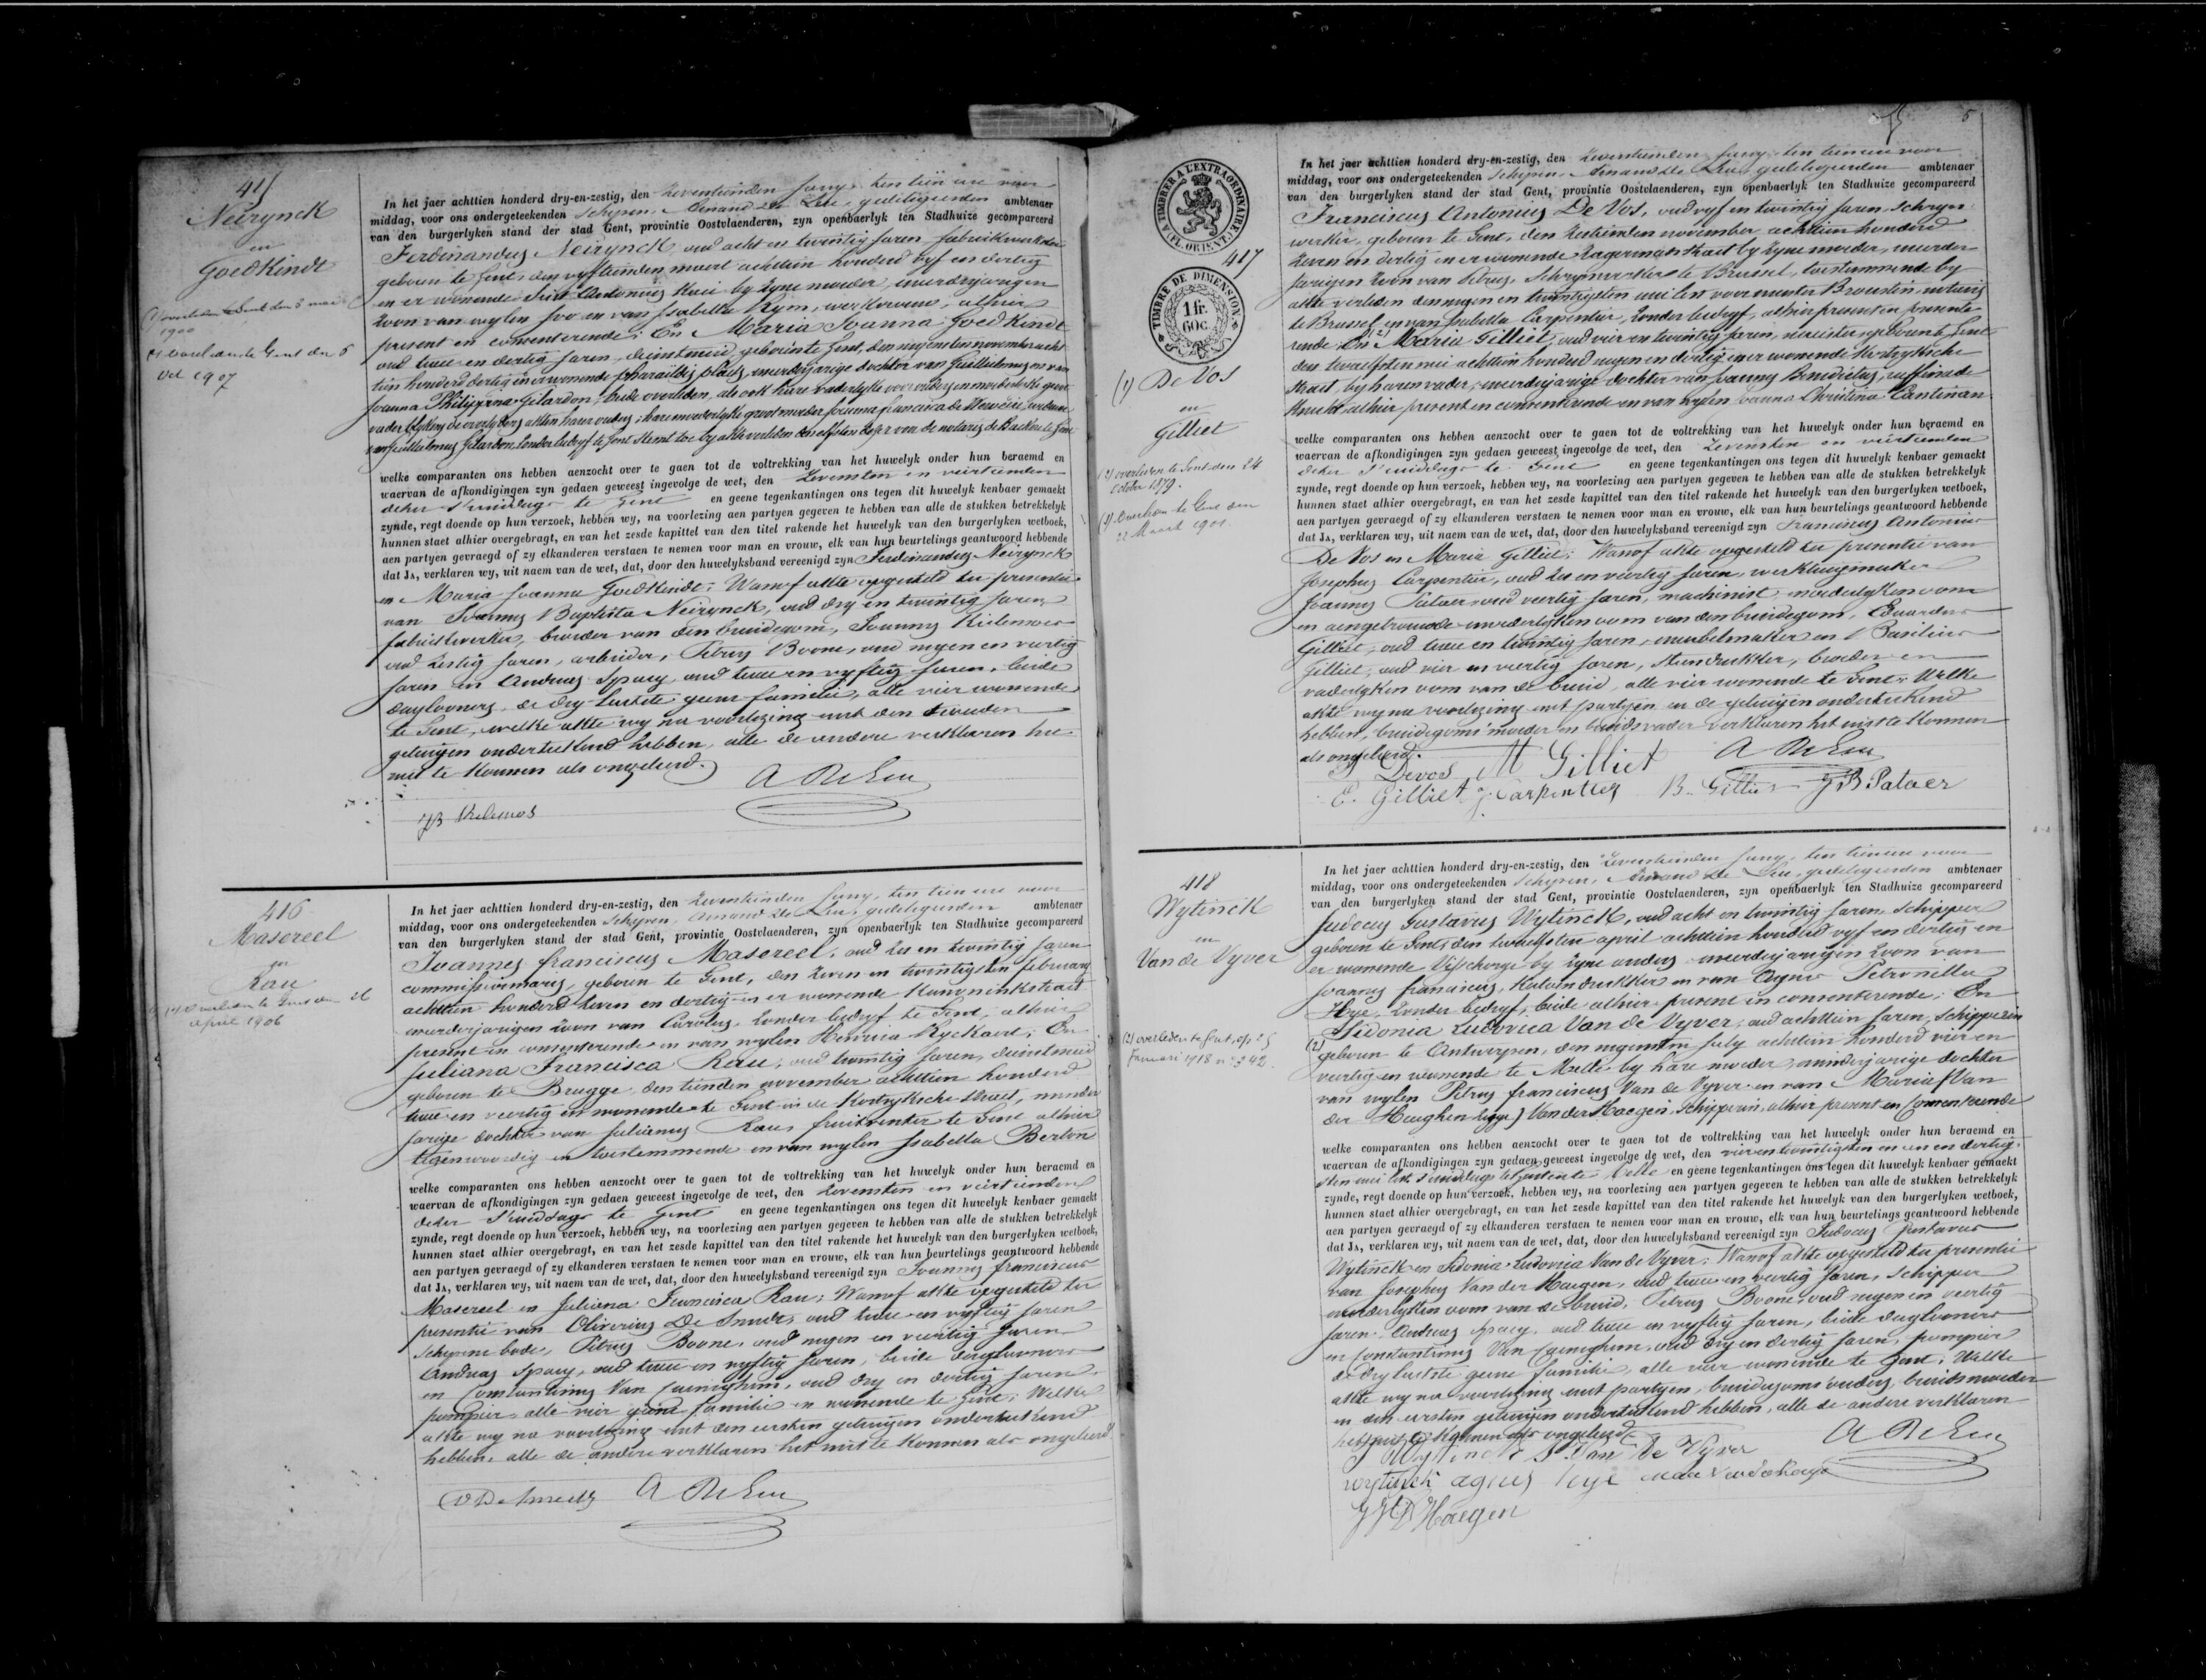 415
Neirynck
en
Goedkindt
(1) overleden te Gent den 3 mei
1900
overleden te Gent den 6
Oct 1907
In het jaer achttien honderd dry-en-zestig, den zeventienden juny, ten tien ure voor
middag, voor ons ondergeteekenden Schepen, Amand De Leu, gedelegeerden ambtenaer
van den burgerlyken stand der stad Gent, provintie Oostvlaenderen, zyn openbaerlyk ten Stadhuize gecompareerd
Ferdinandus Neirynck, oud acht en twintig jaren, fabriekwerker
geboren te Gent, den vyftienden maert achttien honderd vyf en dertig
en er wonende Sint Antonius Kaei by zyne moeder, meerderjarigen
zoon van wylen Ivo en van Isabella Rym, werkvrouw, alhier
present en consenterende; En Maria Joanna Goedkindt
oud twee en dertig jaren, dienstmeid, geboren te Gent, den negensten november acht
tien honderd dertig en er wonende Pharaildis plaets, meerderjarige dochter van Guillielmus en van
Joanna Philippina Gelardon, beide overleden, als ook hare vaderlyke voorouders en moederlyke groot
vader blykens de overlydens akten harer ouders; hare moederlyke grootmoeder Joanna Francisca de Weweirne, weduwe
van Guillielmus Gelardon, zonder bedryf te Gent stemt toe by akte verleden den elfsten dezer voor de notaris de Backer te Gent
welke comparanten ons hebben aenzocht over te gaen tot de voltrekking van het huwelyk onder hun beraemd en
waervan de afkondigingen zyn gedaen geweest ingevolge de wet, den zevensten en veertienden
dezer 's middags te Gent en geene tegenkantingen ons tegen dit huwelyk kenbaer gemaekt
zynde, regt doende op hun verzoek, hebben wy, na voorlezing aen partyen gegeven te hebben van alle de stukken betrekkelyk
hunnen staet alhier overgebragt, en van het zesde kapittel van den titel rakende het huwelyk van den burgerlyken wetboek,
aen partyen gevraegd of zy elkanderen verstaen te nemen voor man en vrouw, elk van hun beurtelings geantwoord hebbende
dat JA, verklaren wy, uit naem van de wet, dat, door den huwelyksband vereenigd zyn Ferdinandus Neirynck
en Maria Joanna Goedkindt; Waervan akte opgesteld ter presentie
van Joannes Baptista Neirynck, oud dry en twintig jaren,
fabriekwerker, broeder van den bruidegom, Joannes Kielemoes
oud zestig jaren, arbeider, Petrus Boone, oud negen en veertig
jaren en Andreas Spaey, oud twee en vyftig jaren, beide
dagloners, de dry laetste geene familie, alle vier wonende
te Gent, welke akte wy na voorlezing met den tweeden
getuigen onderteekend hebben, alle de andere verklaren het
niet te konnen als ongeleerd.
A De Leu
JB Kielemoes
416
Masereel
en
Rau
(1) Overleden te Gent den 26
april 1906
In het jaer achttien honderd dry-en-zestig, den zeventienden juny, ten tien ure voor
middag, voor ons ondergeteekenden Schepen, Amand De Leu, gedelegeerden ambtenaer
van den burgerlyken stand der stad Gent, provintie Oostvlaenderen, zyn openbaerlyk ten Stadhuize gecompareerd
Joannes Franciscus Masereel, oud zes en twintig jaren
commissionnaris, geboren te Gent, den zeven en twintigsten february
achttien honderd zeven en dertig en er wonende Kanoninkstraet
meerderjarigen zoon van Carolus, zonder bedryf te Gent, alhier
present en consenterende en van wylen Henrica Ryckaert; En
Juliana Francisca Rau, oud twintig jaren, dienstmeid
geboren te Brugge, den tienden november achttien honderd
twee en veertig en wonende te Gent in de Kortryksche straet, minder
jarige dochter van Julianus Rau, fruitventer te Gent alhier
tegenwoordig en toestemmende en van wylen Isabella Berton
welke comparanten ons hebben aenzocht over te gaen tot de voltrekking van het huwelyk onder hun beraemd en
waervan de afkondigingen zyn gedaen geweest ingevolge de wet, den zevensten en veertienden
dezer 's middags te Gent en geene tegenkantingen ons tegen dit huwelyk kenbaer gemaekt
zynde, regt doende op hun verzoek, hebben wy, na voorlezing aen partyen gegeven te hebben van alle de stukken betrekkelyk
hunnen staet alhier overgebragt, en van het zesde kapittel van den titel rakende het huwelyk van den burgerlyken wetboek,
aen partyen gevraegd of zy elkanderen verstaen te nemen voor man en vrouw, elk van hun beurtelings geantwoord hebbende
dat JA, verklaren wy, uit naem van de wet, dat, door den huwelyksband vereenigd zyn Joannes Franciscus
Masereel en Juliana Francisca Rau; Waervan akte opgesteld ter
presentie van Oliverius De Smedt, oud twee en vyftig jaren
schepene bode, Petrus Boone, oud negen en veertig jaren
Andreas Spaey, oud twee en vyftig jaren, beide dagloners
en Constantinus Van Caeneghem, oud dry en dertig jaren,
pompier, alle vier geene familie en wonende te Gent; Welke
akte wy na voorlezing met den eersten getuigen onderteekend
hebben, alle de andere verklaren het niet te konnen als ongeleerd
O De Smedt A De Leu
5
TIMBRER A L'EXTRAORDINAIRE
FL. ORIENT.
417
TIMBRE DE DIMENSION
1 fr.
60 c.
(1) De Vos
en
Gilliet
(2) overleden te Gent den 24
October 1879.
(1) Overleden te Gent den
22 Maart 1901
In het jaer achttien honderd dry-en-zestig, den zeventienden juny, ten tien ure voor
middag, voor ons ondergeteekenden Schepen, Amand De Leu, gedelegeerden ambtenaer
van den burgerlyken stand der stad Gent, provintie Oostvlaenderen, zyn openbaerlyk ten Stadhuize gecompareerd
Franciscus Antonius De Vos, oud vyf en twintig jaren, schryn
werker, geboren te Gent, den zestienden november achttien honderd
zeven en dertig en er wonende Zagermanstraet by zyne moeder, meerder
jarigen zoon van Petrus, schrynwerker te Brussel, toestemmende by
akte verleden den negen en twintigsten mei lest voor meester Broustin, notaris
te Brussel en van Isabella Carpentier, zonder bedryf, alhier present en consente
rende; En (2) Maria Gilliet, oud vier en twintig jaren, naeister, geboren te Gent
den twaelfsten mei achttien honderd negen en dertig en er wonende Kortryksche
straet, by haren vader, meerderjarige dochter van Joannes Benedictus, raffinade
knecht alhier present en consenterende en van wylen Joanna Christina Cantinan
welke comparanten ons hebben aenzocht over te gaen tot de voltrekking van het huwelyk onder hun beraemd en
waervan de afkondigingen zyn gedaen geweest ingevolge de wet, den zevensten en veertienden
dezer 's middags te Gent en geene tegenkantingen ons tegen dit huwelyk kenbaer gemaekt
zynde, regt doende op hun verzoek, hebben wy, na voorlezing aen partyen gegeven te hebben van alle de stukken betrekkelyk
hunnen staet alhier overgebragt, en van het zesde kapittel van den titel rakende het huwelyk van den burgerlyken wetboek,
aen partyen gevraegd of zy elkanderen verstaen te nemen voor man en vrouw, elk van hun beurtelings geantwoord hebbende
dat JA, verklaren wy, uit naem van de wet, dat, door den huwelyksband vereenigd zyn Franciscus Antonius
De Vos en Maria Gilliet; Waervan akte opgesteld ter presentie van
Josephus Carpentier, oud zes en veertig jaren, werktuigmaker
Joannes Pataer, oud veertig jaren, machinist, moederlyken oom
en aengetrouwde moederlyken oom van den bruidegom, Eduardus
Gilliet, oud twee en twintig jaren, meubelmaker en Basilius
Gilliet, oud vier en veertig jaren, steendrukker, broeder en
vaderlyken oom van de bruid, alle vier wonende te Gent. Welke
akte wy na voorlezing met partyen en de getuigen onderteekend
hebben, bruidegoms moeder en bruids vader verklaren het niet te konnen
als ongeleerd.
Devos M Gilliet A De Leu
E. Gilliet J. Carpentier B. Gilliet JB Pataer
418
Wytinck
en
Van de Vyver
(2) overleden te Gent, op 25
Januari 1918 n° 342
In het jaer achttien honderd dry-en-zestig, den zeventienden juny, ten tien ure voor
middag, voor ons ondergeteekenden Schepen, Amand De Leu, gedelegeerden ambtenaer
van den burgerlyken stand der stad Gent, provintie Oostvlaenderen, zyn openbaerlyk ten Stadhuize gecompareerd
Judocus Gustavus Wytinck, oud acht en twintig jaren, schipper
geboren te Gent, den twaelfsten april achttien honderd vyf en dertig en
er wonende Visscherye by zyne ouders meerderjarigen zoon van
Joannes Franciscus, katoendrukker en van Agnes Petronella
Hye, zonder bedryf, beide alhier present en consenterende; En
Sidonia Ludovica Van de Vyver, oud achttien jaren, schipperin
(2) geboren te Antwerpen, den negensten july achttien honderd vier en
veertig en wonende te Melle by hare moeder, minderjarige dochter
van wylen Petrus Franciscus Van de Vyver en van Maria (Van
der Haeghen lizze) Van der Haegen, schipperin, alhier present en consenterende
welke comparanten ons hebben aenzocht over te gaen tot de voltrekking van het huwelyk onder hun beraemd en
waervan de afkondigingen zyn gedaen geweest ingevolge de wet, den vierentwintigsten en een en dertig
sten mei lest 's middags te Gent en te Melle en geene tegenkantingen ons tegen dit huwelyk kenbaer gemaekt
zynde, regt doende op hun verzoek, hebben wy, na voorlezing aen partyen gegeven te hebben van alle de stukken betrekkelyk
hunnen staet alhier overgebragt, en van het zesde kapittel van den titel rakende het huwelyk van den burgerlyken wetboek,
aen partyen gevraegd of zy elkanderen verstaen te nemen voor man en vrouw, elk van hun beurtelings geantwoord hebbende
dat JA, verklaren wy, uit naem van de wet, dat, door den huwelyksband vereenigd zyn Judocus Gustavus
Wytinck en Sidonia Ludovica Van de Vyver; Waervan akte opgesteld ter presentie
van Josephus Van der Haegen, oud twee en veertig jaren, schipper
moederlyken oom van de bruid, Petrus Boone, oud negen en veertig
jaren, Andreas Spaey, oud twee en vyftig jaren, beide dagloners
en Constantinus Van Caeneghem, oud dry en dertig jaren, pompier
de dry laetste geene familie, alle vier wonende te Gent. Welke
akte wy na voorlezing met partyen, bruidegoms ouders, bruids moeder
en den eersten getuigen onderteekend hebben, alle de andere verklaren
het niet te konnen als ongeleerd
J Wytinck S. Van De Vyver A De Leu
wytinck agnes hye
JVD Haegen